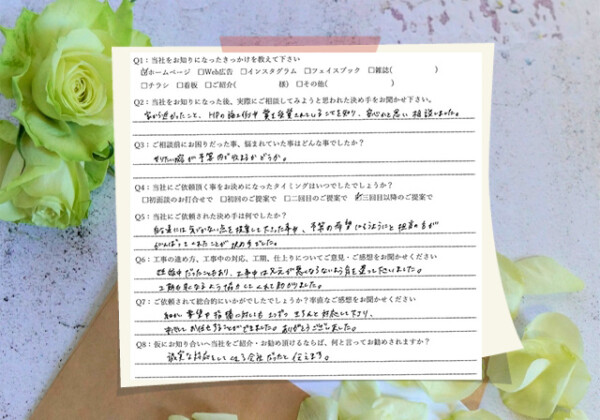 Q1：当社をお知りになったきっかけを教えて下さい
☑ホームページ □Web広告 □インスタグラム □フェイスブック □雑誌( )
□チラシ □看板 □ご紹介( 様) □その他( )
Q2：当社をお知りになった後、実際にご相談してみようと思われた決め手をお聞かせ下さい。
家から近かったこと、HPの施工例や賞を受賞されていることを知り、安心かと思い相談いました。
Q3：ご相談前にお困りだった事、悩まれていた事はどんな事でしたか？
やりたい事が予算内で収まるかどうか。
Q4：当社にご依頼頂く事をお決めになったタイミングはいつでしたでしょうか？
□初面談のお打合せで □初回のご提案で □二回目のご提案で ☑三回目以降のご提案で
Q5：当社にご依頼された決め手は何でしたか？
気づかない点を提案して下さった事や、予算の希望に
がんばってくれたことが決め手でした。
Q6：工事の進め方、工事中の対応、工期、仕上りについてご意見・ご感想をお聞かせください
だったこともあり、工事中は
工期も
協力してくれて助かりました。
Q7：ご依頼されて総合的にいかがでしたでしょうか？率直なご感想をお聞かせください
細かい要望や
きちんと対応して下さり、
お任せすることができました。ありがとうございました。
Q8：仮にお知り合いへ当社をご紹介・お勧め頂けるならば、何と言ってお勧めされますか？
誠実な対応をしてくれる会社だったと伝えます。